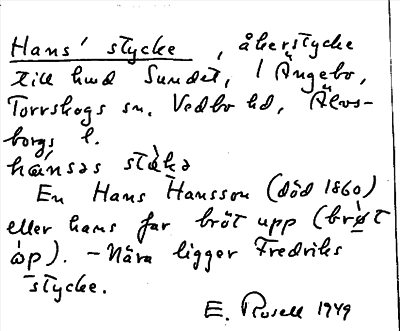 Hans' stycke, åkerstycke
till hmd Sundet, 1 Ängebo,
Torrskogs sn. Vedbo hd, Älvs-
borgs l.
hánsəs stàkə
En Hans Hansson (död 1860)
eller hans far bröt upp (brǿt
òp). - Nära ligger Fredriks
stycke.
E. Rosell 1949